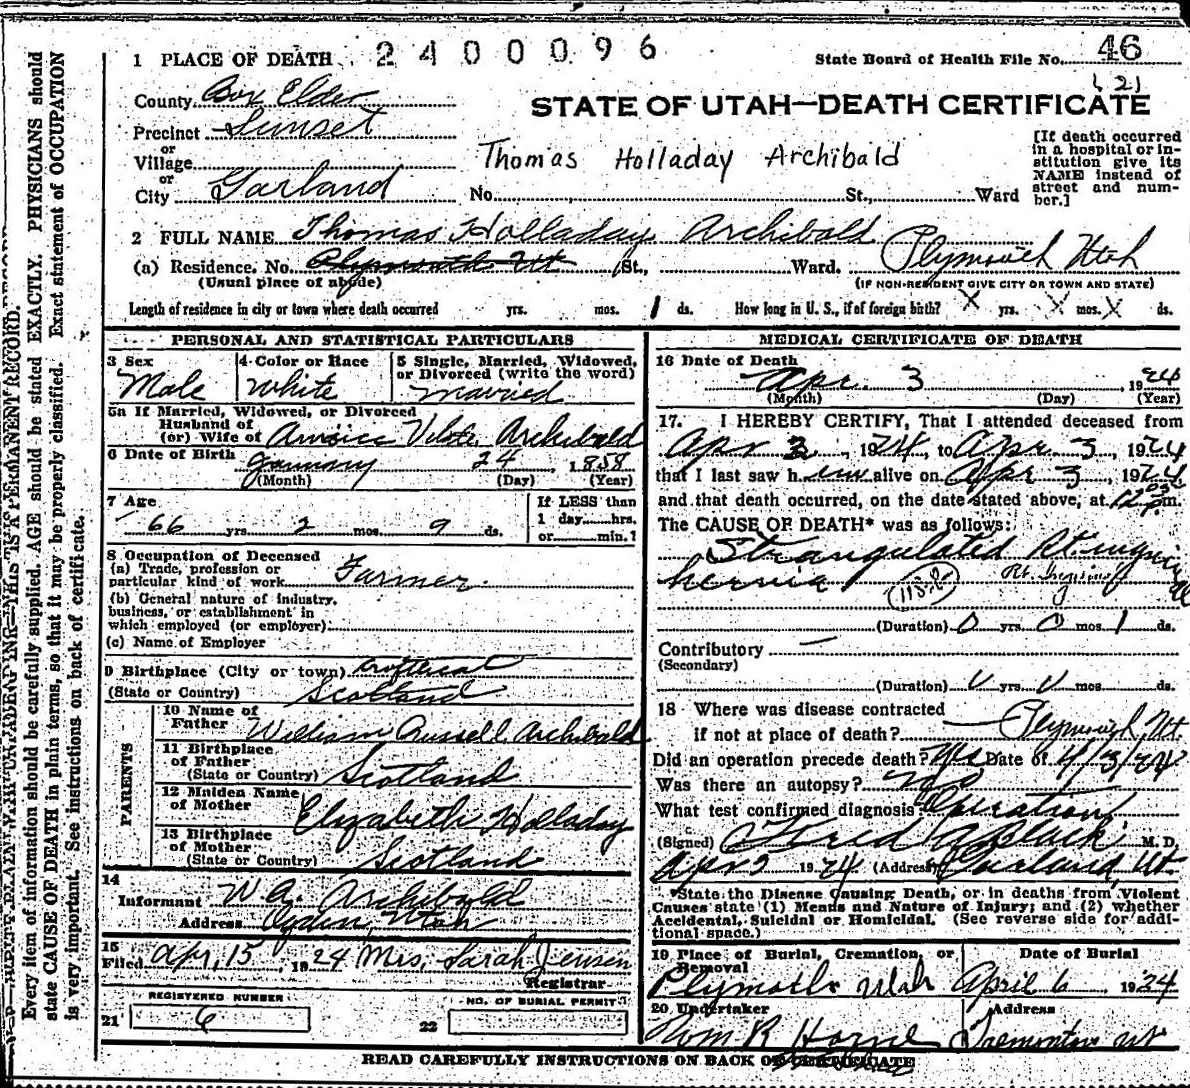 1 PLACE OF DEATH
2400096
State Board of Health File No. 46
121
County Box Elder
STATE OF UTAH—DEATH CERTIFICATE
Precinct Sunset
or
Village
or
City Garland
Thomas Holladay Archibald
No. St., Ward
[If death occurred in a hospital or institution give its NAME instead of street and number.]
2 FULL NAME Thomas Holladay Archibald
(a) Residence. No. Plymouth Ut St., Ward. Plymouth Utah
(Usual place of abode)
(IF NON-RESIDENT GIVE CITY OR TOWN AND STATE)
Length of residence in city or town where death occurred yrs. mos. 1 ds. How long in U. S., if of foreign birth? X yrs. X mos. X ds.
PERSONAL AND STATISTICAL PARTICULARS
3 Sex
Male
4 Color or Race
White
5 Single, Married, Widowed, or Divorced (write the word)
married
5a If Married, Widowed, or Divorced
Husband of
(or) Wife of Archibald
6 Date of Birth January 24, 1858
(Month) (Day) (Year)
7 Age
66 yrs. 2 mos. 9 ds.
If LESS than
1 day hrs.
or min.?
8 Occupation of Deceased
(a) Trade, profession or
particular kind of work Farmer.
(b) General nature of industry,
business, or establishment in
which employed (or employer)
(c) Name of Employer
9 Birthplace (City or town)
(State or Country) Scotland
PARENTS
10 Name of
Father William Russell Archibald
11 Birthplace
of Father
(State or Country) Scotland
12 Maiden Name
of Mother Elizabeth Holladay
13 Birthplace
of Mother
(State or Country) Scotland
14
Informant W.G. Archibald
Address Ogden, Utah
15
Filed Apr, 15, 1924 Mrs. Sarah Jensen
Registrar
REGISTERED NUMBER
21 6
NO. OF BURIAL PERMIT
22
MEDICAL CERTIFICATE OF DEATH
16 Date of Death
Apr. 3, 1924
(Month) (Day) (Year)
17. I HEREBY CERTIFY, That I attended deceased from
Apr 3, 1924, to Apr. 3, 1924
that I last saw him alive on Apr 3, 1924
and that death occurred, on the date stated above, at 12 m.
The CAUSE OF DEATH* was as follows:
Strangulated Rt. inguinal
hernia
(Duration) 0 yrs 0 mos 1 ds.
Contributory —
(Secondary)
(Duration) yrs. mos. ds.
18 Where was disease contracted
if not at place of death? Plymouth, Ut.
Did an operation precede death? Yes Date of 4/3/24
Was there an autopsy? No
What test confirmed diagnosis Operation
(Signed) Black M. D.
Apr 3 1924 (Address) Garland, Ut.
*State the Disease Causing Death, or in deaths from Violent
Causes state (1) Means and Nature of Injury; and (2) whether
Accidental, Suicidal or Homicidal. (See reverse side for addi-
tional space.)
19 Place of Burial, Cremation, or
Removal
Plymouth Utah
Date of Burial
April 6 1924
20 Undertaker
Wm R Horne
Address
Tremonton Ut
READ CAREFULLY INSTRUCTIONS ON BACK OF CERTIFICATE
Every item of information should be carefully supplied. AGE should be stated EXACTLY. PHYSICIANS should
state CAUSE OF DEATH in plain terms, so that it may be properly classified. Exact statement of OCCUPATION
is very important. See instructions on back of certificate.